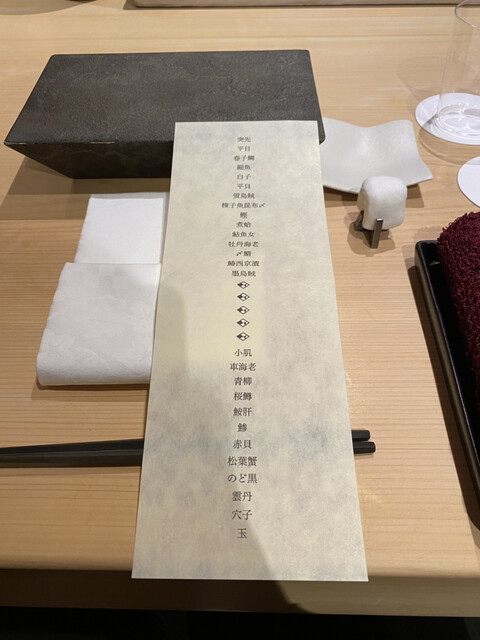 突先
平目
春子鯛
細魚
白子
平貝
蛍烏賊
梭子魚昆布〆
鰹
煮鮑
鮎魚女
牡丹海老
〆鯖
鰆西京漬
墨烏賊
小肌
車海老
青柳
桜鱒
鮟肝
鯵
赤貝
松葉蟹
のど黒
雲丹
穴子
玉